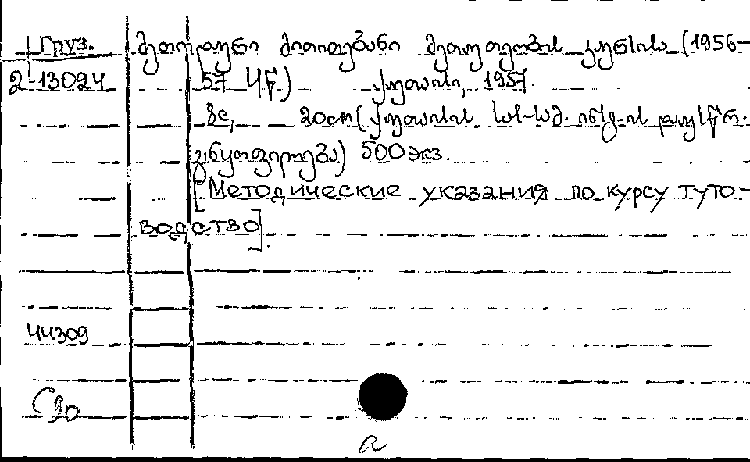 Груз. მეთოდური მითითებანი მეთუთეობის კურსის (1956-
2-13024 57 წწ) ქუთაისი, 1957.
გვ, 20cm (ქუთაისის სას-სამ. ინ-ტ-ის
500 экз.
[Методические указания по курсу туто-
водство].
44309
a